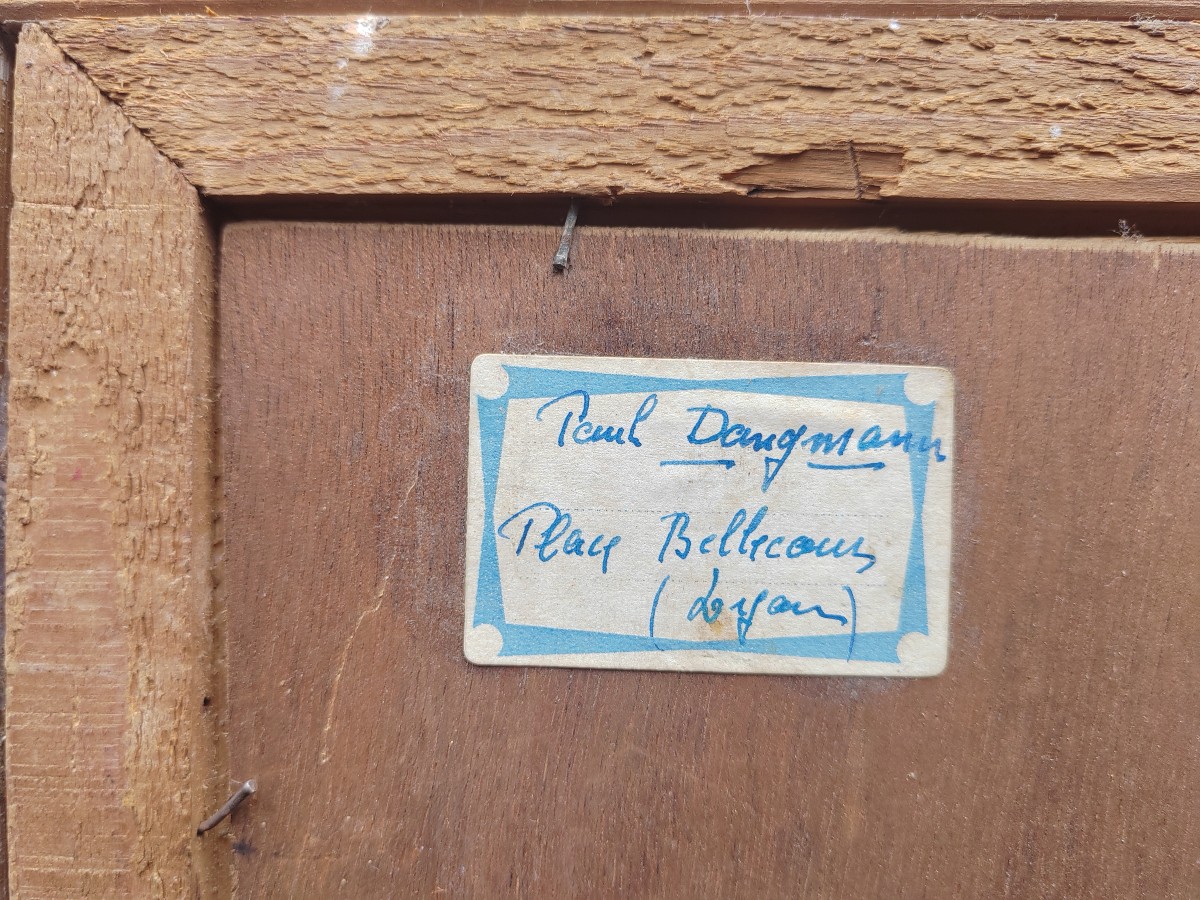 Paul Dangmann
Place Bellecour
(Lyon)